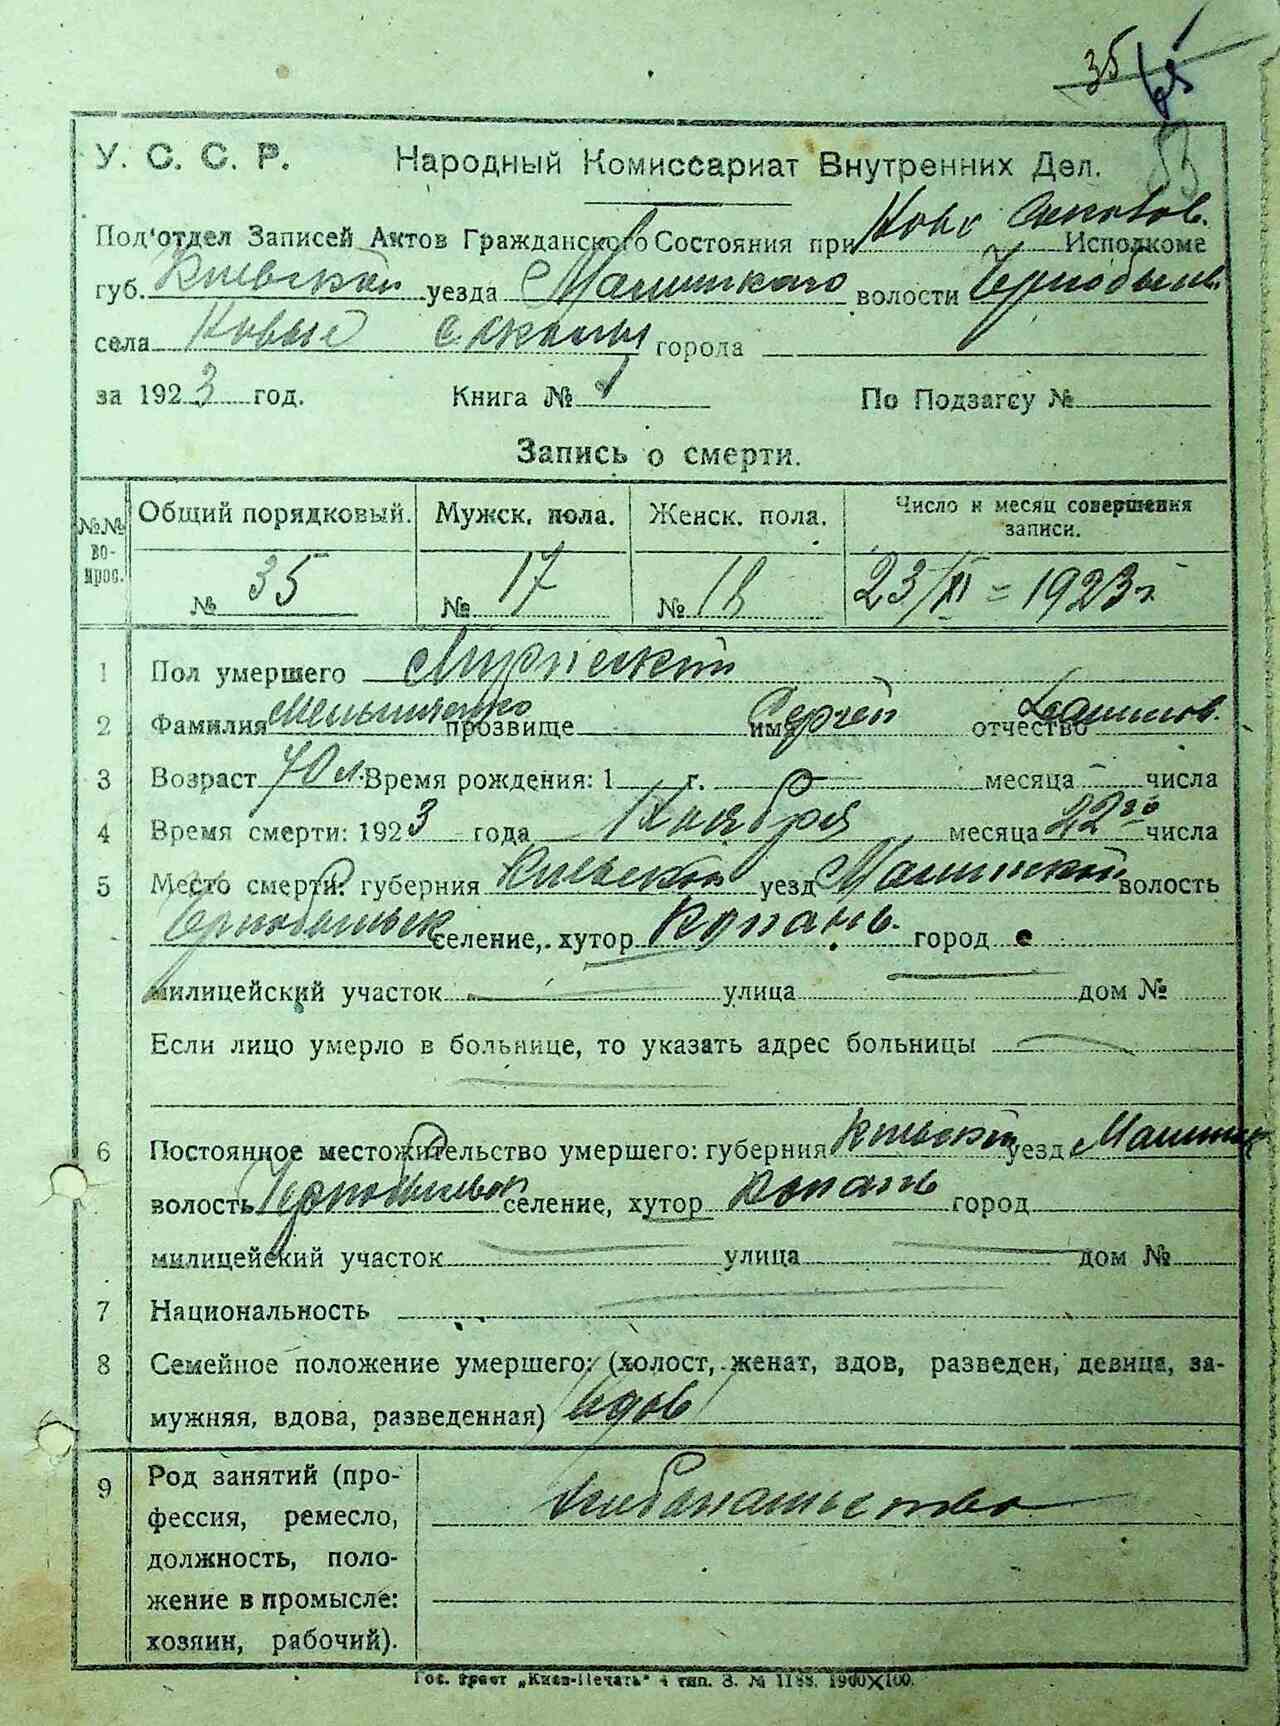 35
У. С. С. Р. Народный Комиссариат Внутренних Дел.
Под'отдел Записей Актов Гражданского Состояния при Ново Соколов. Исполкоме
губ. Киевской уезда Малинского волости Чернобыльс.
села Новые Соколы города
за 1923 год. Книга № По Подзагсу №
Запись о смерти.
№№ вопрос. Общий порядковый. Мужск. пола. Женск. пола. Число и месяц совершения записи.
№ 35 № 17 № 18 23/XI = 1923 г.
1 Пол умершего Мужеский
2 Фамилия прозвище имя Сергей отчество
3 Возраст 70 л. Время рождения: 1 г. месяца числа
4 Время смерти: 1923 года Ноября месяца 22го числа
5 Место смерти: губерния Киевской уезд Малинский волость
Чернобыльск селение, хутор Копань. город
милицейский участок улица дом №
Если лицо умерло в больнице, то указать адрес больницы
6 Постоянное местожительство умершего: губерния Киевской уезд Малинск
волость селение, хутор Копань город
милицейский участок улица дом №
7 Национальность
8 Семейное положение умершего: (холост, женат, вдов, разведен, девица, за-
мужняя, вдова, разведенная) вдов
9 Род занятий (про-
фессия, ремесло,
должность, поло-
жение в промысле:
хозяин, рабочий).
Хлебопашество
Гос. трест „Киев-Печать" 4 тип. З. № 1188. 1900×100.